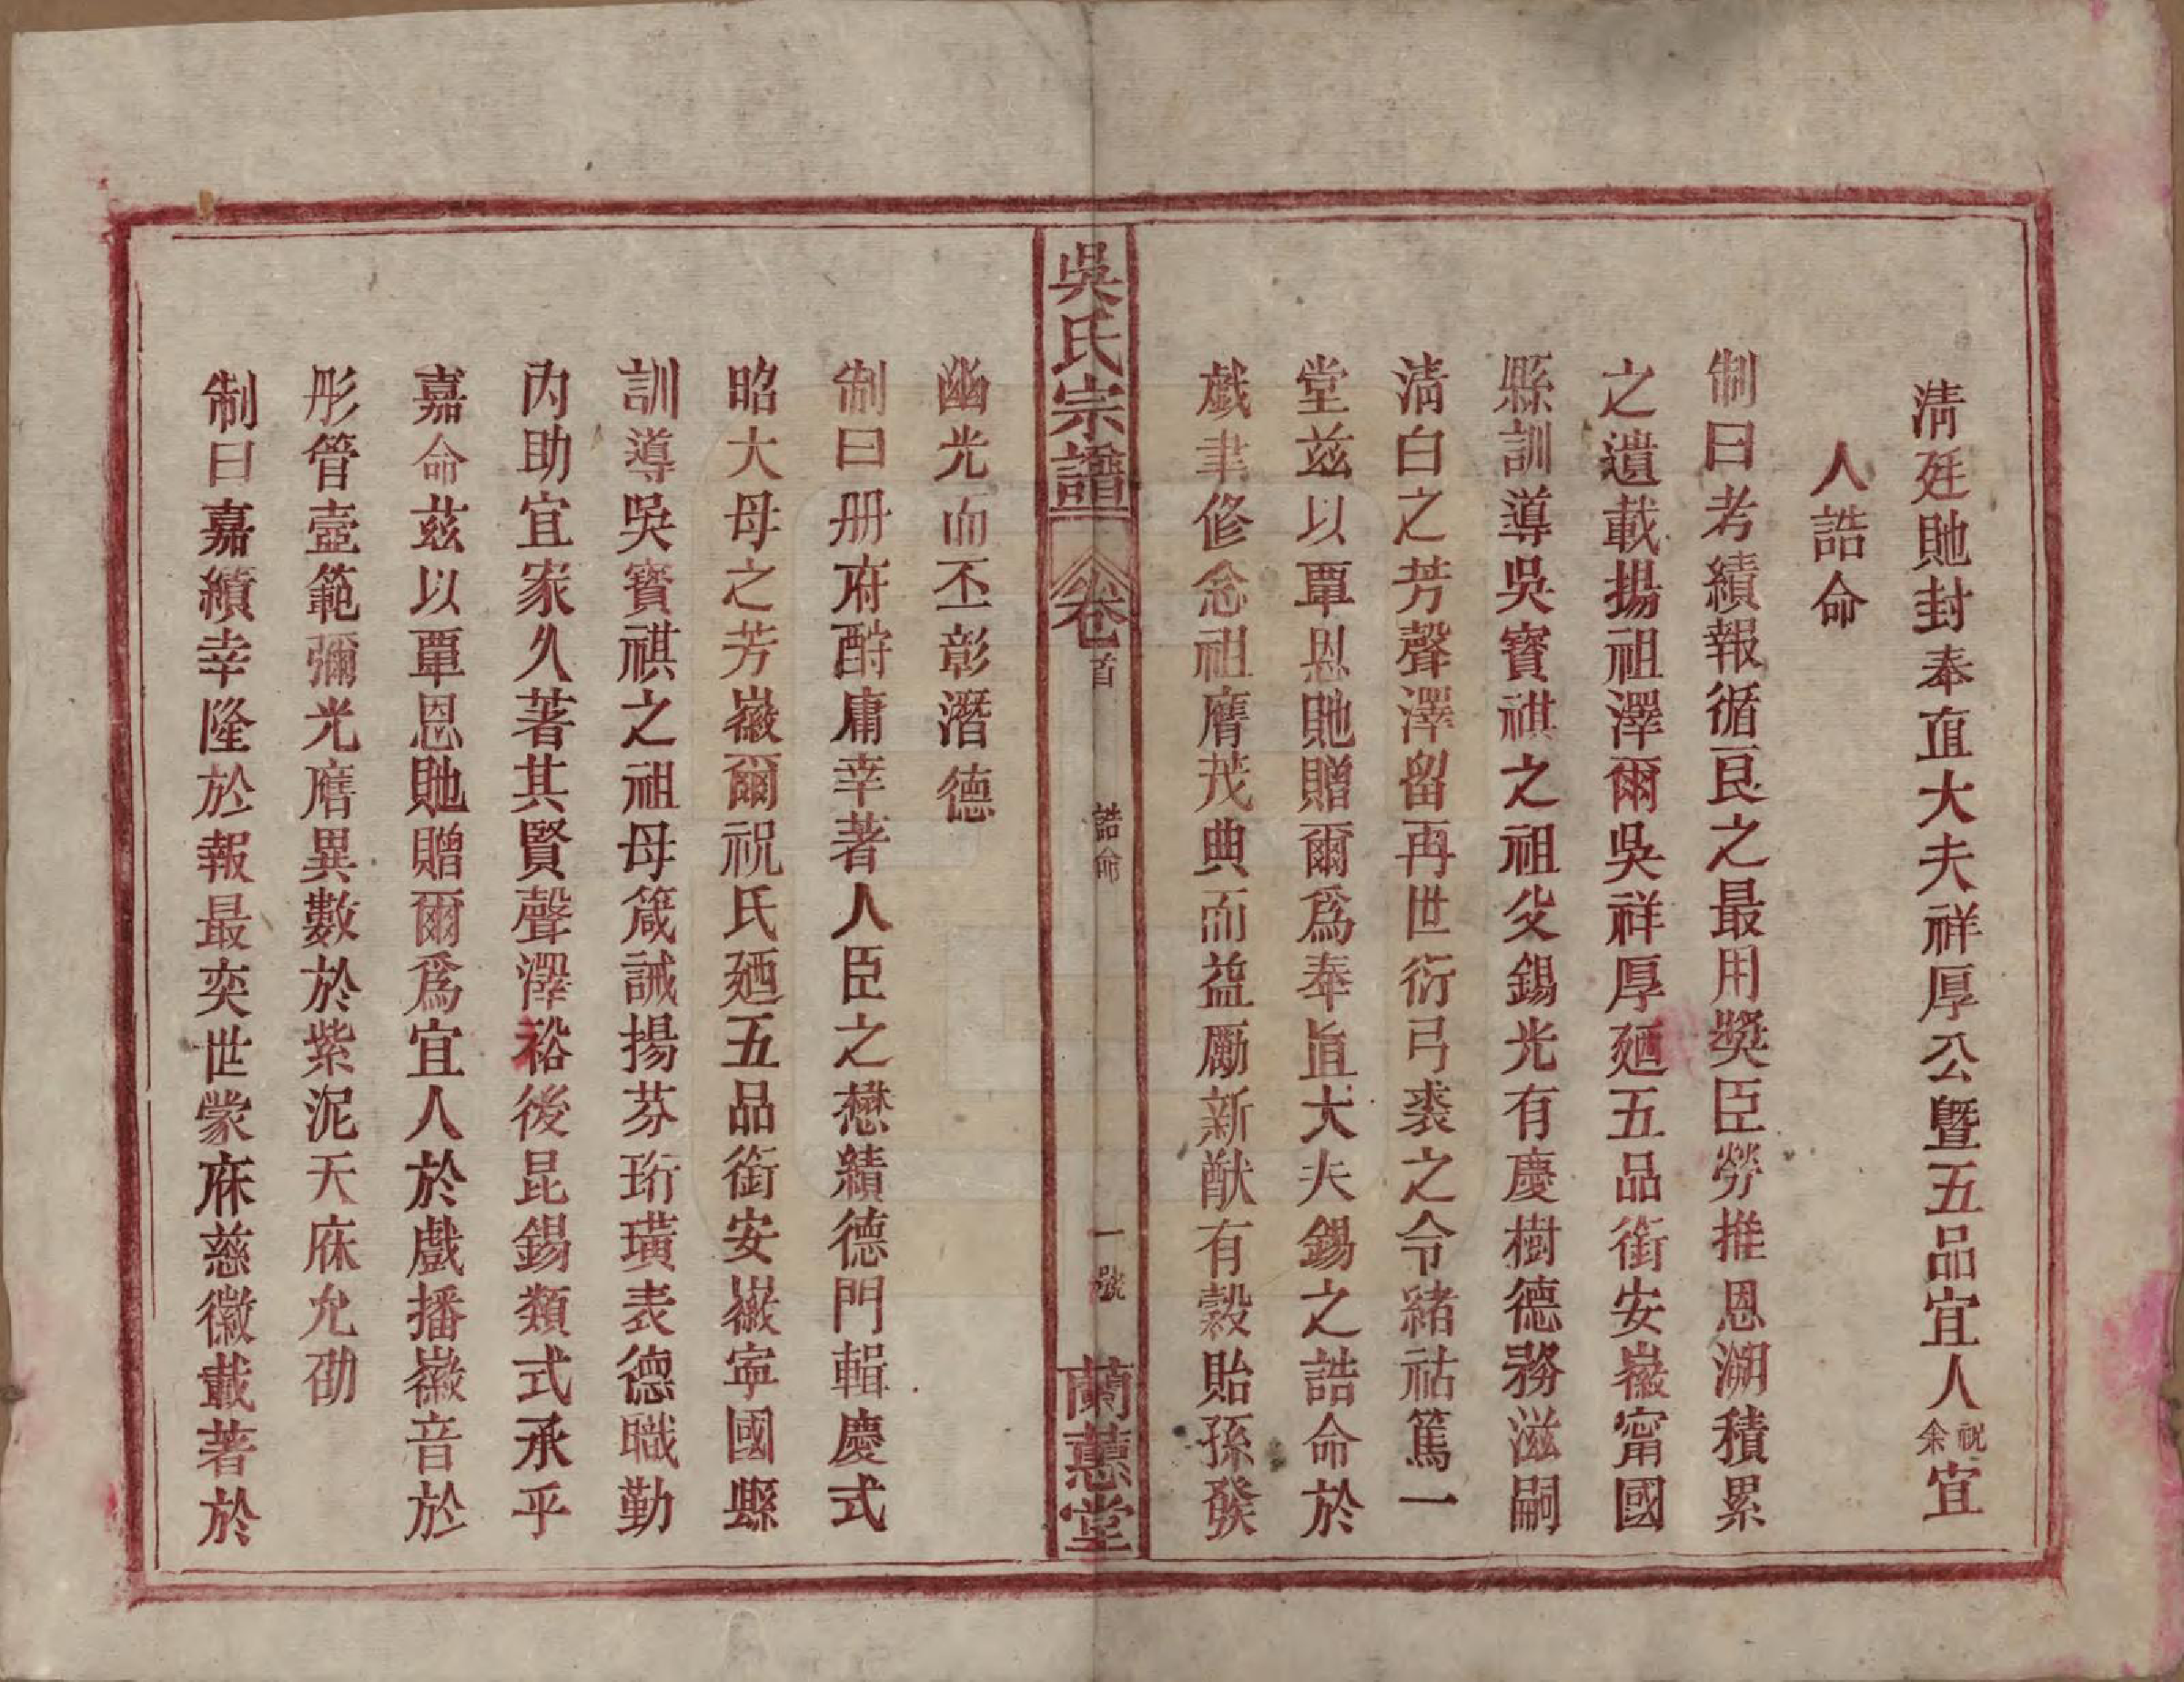 清廷貤封奉直大夫祥厚公暨五品宜人祝余宜
人誥命
制曰考績報循良之最用奬臣勞推恩溯積累
之遺載揚祖澤爾吳祥厚廼五品銜安徽甯國
縣訓導吳寶祺之祖父錫光有慶樹德務滋嗣
清白之芳聲澤留再世衍弓裘之令緒祜篤一
堂玆以覃恩貤贈爾爲奉直大夫錫之誥命於
戱聿修念祖膺茂典而益勵新猷有穀貽孫發
吳氏宗譜 卷首 誥命 一號 蘭蕙堂
幽光而丕彰潛德
制曰册府酧庸幸著人臣之懋績德門輯慶式
昭大母之芳徽爾祝氏廼五品銜安徽寧國縣
訓導吳寶祺之祖母箴誡揚芬珩璜表德職勤
內助宜家久著其賢聲澤裕後昆錫類式承乎
嘉命玆以覃恩貤贈爾爲宜人於戲播徽音於
彤管壼範彌光膺異數於紫泥天庥允劭
制曰嘉績幸隆於報最奕世蒙庥慈徽載著於